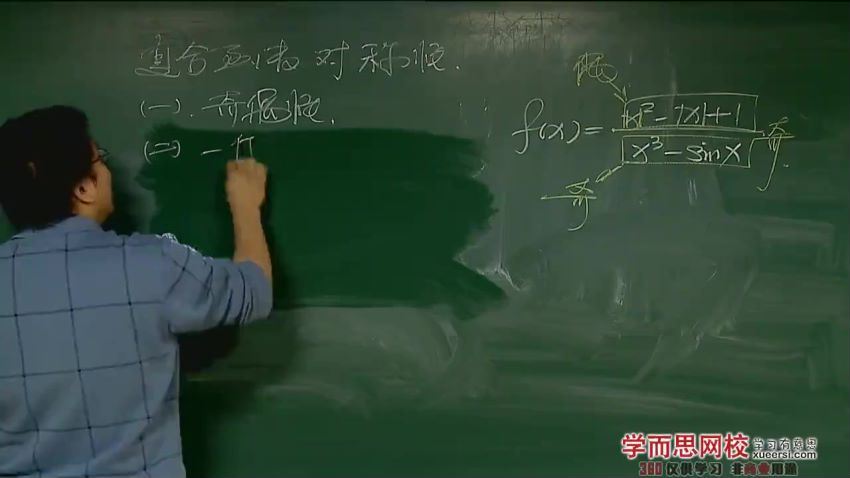 复合函数对称性.
(一). 奇偶性.
(二) 一
偶
f(x)= x²-|x|+1 奇
x³-sinx
奇
学而思网校 学习有意思
xueersi.com
360 仅供学习 非商业用途